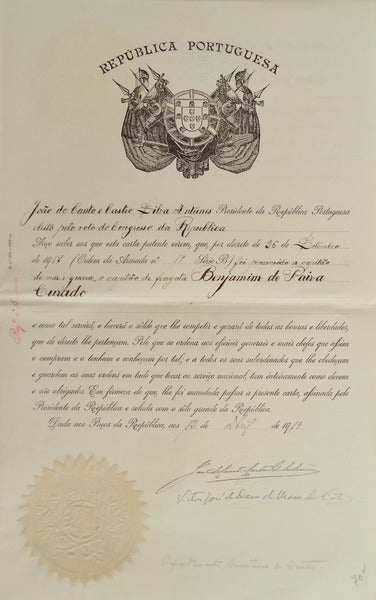 REPÚBLICA PORTUGUESA
João do Canto e Castro Silva Antunes Presidente da República Portuguesa
eleito pelo voto do Congresso da República
Faço saber aos que esta carta patente virem, que, por decreto de 26 de Setembro
de 191 (Ordem da Armada n.º 17 Série B) foi nomeado a capitão
de mar e guerra, o capitão de fragata Benjamim de Paiva
Curado
e como tal servirá, e haverá o sôldo que lhe competir e gozará de todas as honras e liberdades,
que de direito lhe pertençam. Pelo que se ordena aos oficiais generais e mais chefes que assim
o cumpram e o tenham e conheçam por tal; e a todos os seus subordinados que lhe obedeçam
e guardem as suas ordens em tudo que tocar ao serviço nacional, tam inteiramente como devem
e são obrigados. Em firmeza do que, lhe foi mandada passar a presente carta, assinada pelo
Presidente da República e selada com o sêlo grande da República.
Dada nos Paços da República, aos 12 de Abril de 1919